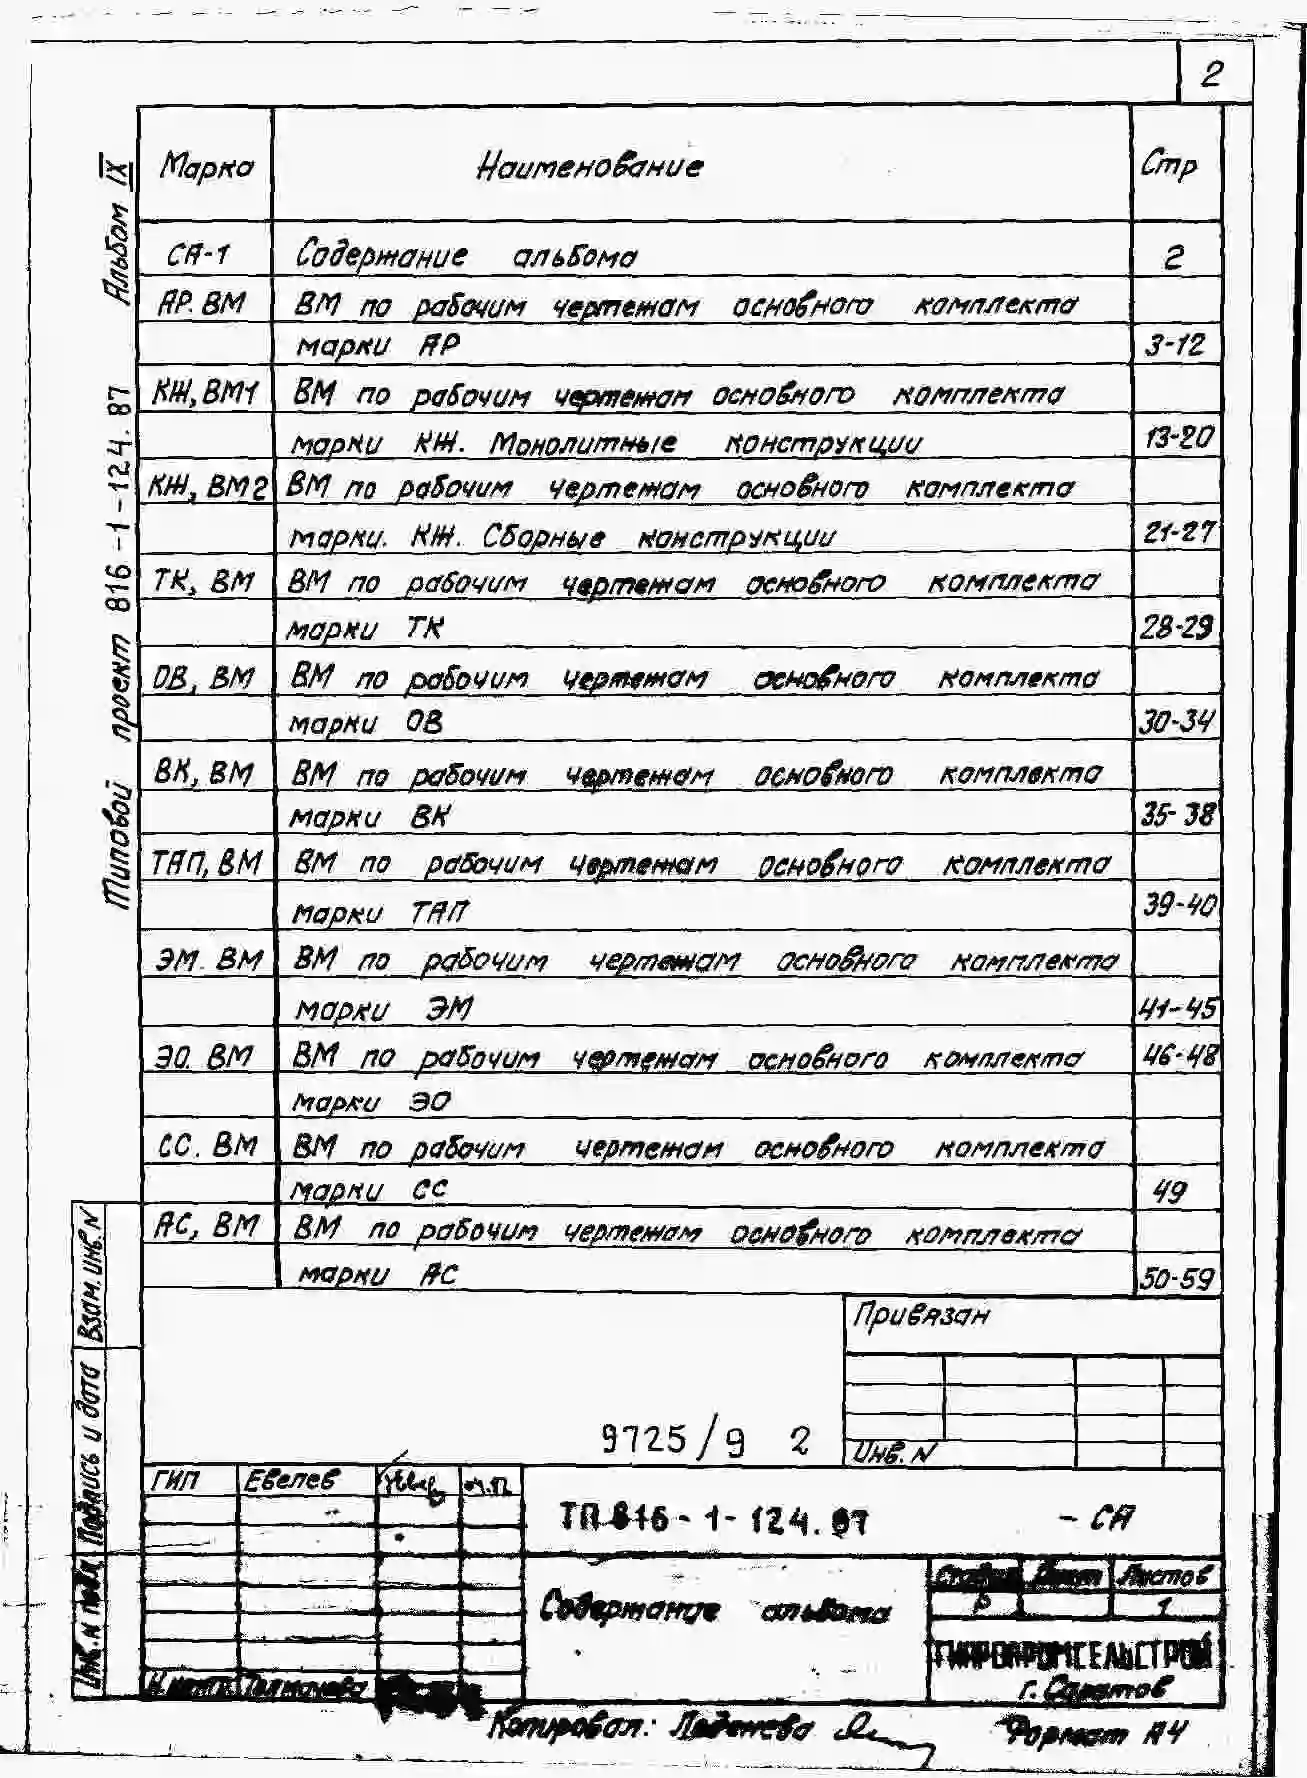 2
Марка Наименование Стр
СА-1 Содержание альбома 2
АР. ВМ ВМ по рабочим чертежам основного комплекта
марки АР 3-12
КЖ, ВМ1 ВМ по рабочим чертежам основного комплекта
марки КЖ. Монолитные конструкции 13-20
КЖ, ВМ2 ВМ по рабочим чертежам основного комплекта
марки. КЖ. Сборные конструкции 21-27
ТК, ВМ ВМ по рабочим чертежам основного комплекта
марки ТК 28-29
ОВ, ВМ ВМ по рабочим чертежам основного комплекта
марки ОВ 30-34
ВК, ВМ ВМ по рабочим чертежам основного комплекта
марки ВК 35-38
ТАП, ВМ ВМ по рабочим чертежам основного комплекта
марки ТАП 39-40
ЭМ. ВМ ВМ по рабочим чертежам основного комплекта
марки ЭМ 41-45
ЭО. ВМ ВМ по рабочим чертежам основного комплекта 46-48
марки ЭО
СС. ВМ ВМ по рабочим чертежам основного комплекта
марки СС 49
АС, ВМ ВМ по рабочим чертежам основного комплекта
марки АС 50-59
Типовой проект 816-1-124.87 Альбом IX
Взам. инв. N
Подпись и дата
Инв. N подл
Привязан
Инв. N
9725/9 2
ГИП Евелев
ТП 816-1-124.87 - СА
Содержание альбома
Стадия Лист Листов
Р 1
ГИПРОПРОМСЕЛЬСТРОЙ
г. Саратов
Н.контр. Толмачева
Копировал: Формат А4